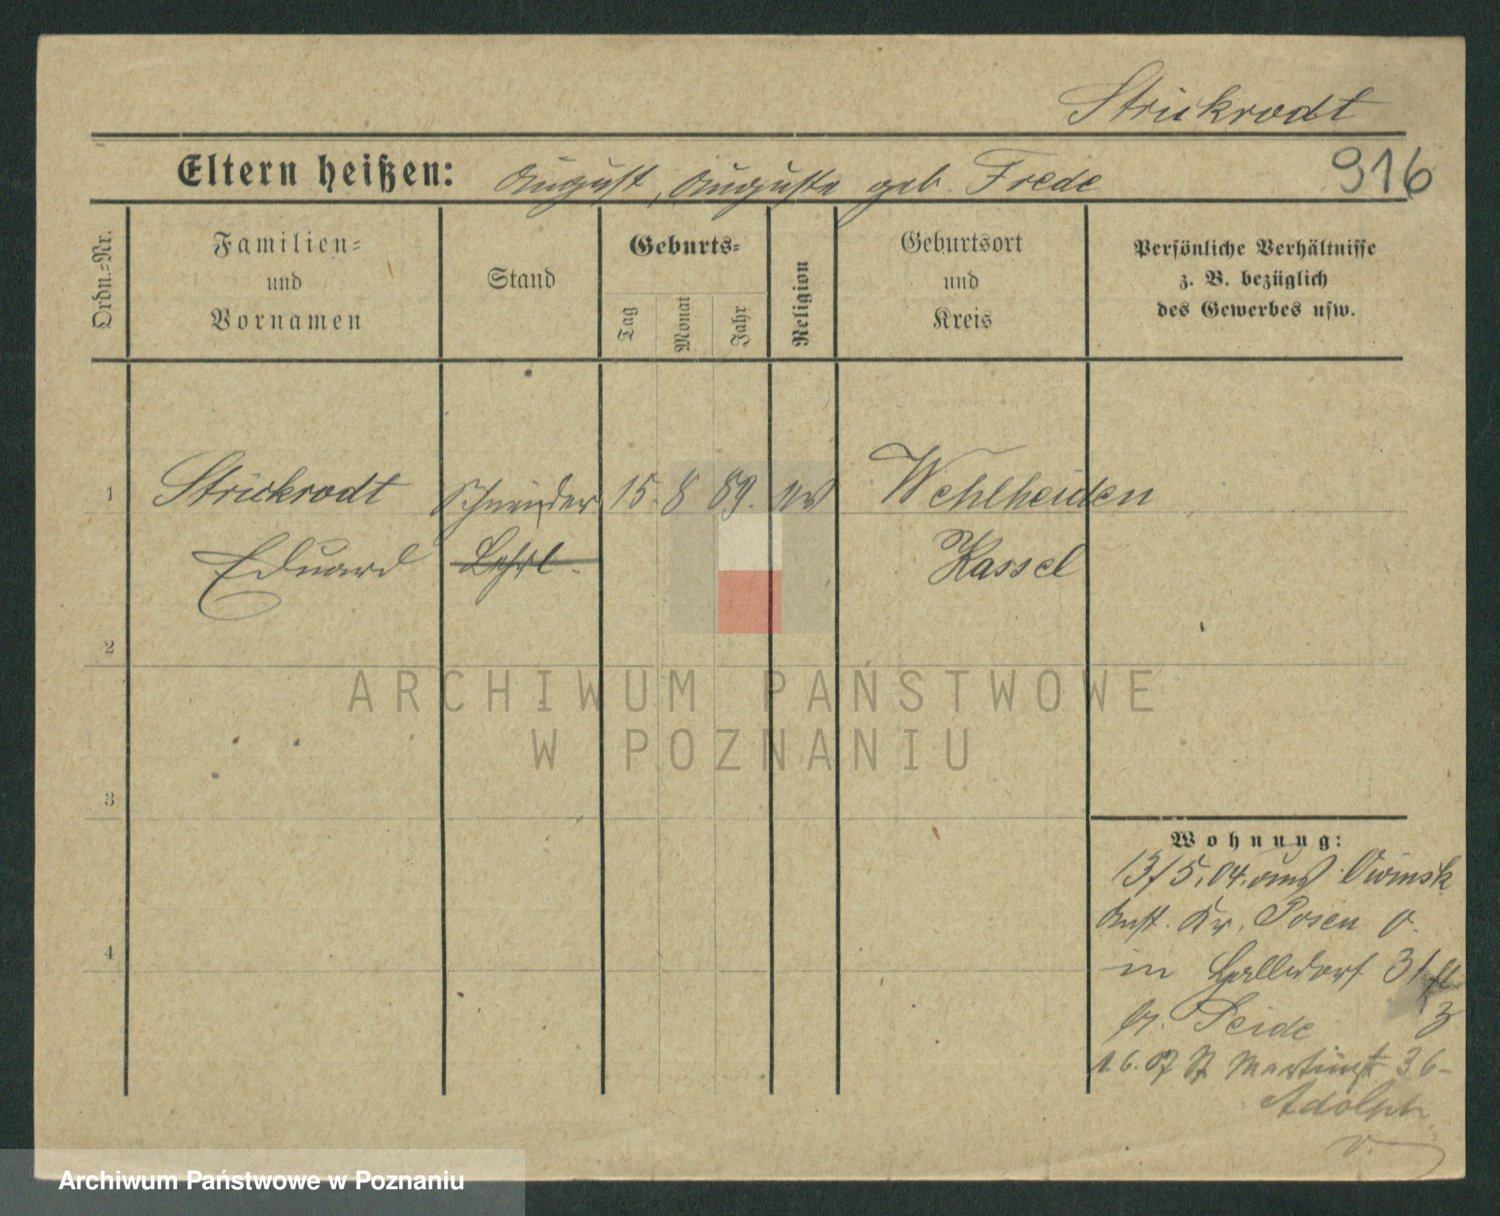 Strickrodt
Eltern heißen: August, Auguste geb. Frede
916
Ordn.=Nr.
Familien=
und
Vornamen
Stand
Geburts=
Tag
Monat
Jahr
Religion
Geburtsort
und
Kreis
Persönliche Verhältnisse
z. B. bezüglich
des Gewerbes usw.
1 Strickrodt Schneider 15. 8 89. ev Wehlheiden
Eduard Lehrl. Kassel
2
3
4
Wohnung:
13/5.04. aus Owinsk
Anst. Kr. Posen
in 31
Seide 3
St Martinst 36
Adolph
v.
ARCHIWUM PAŃSTWOWE
W POZNANIU
Archiwum Państwowe w Poznaniu